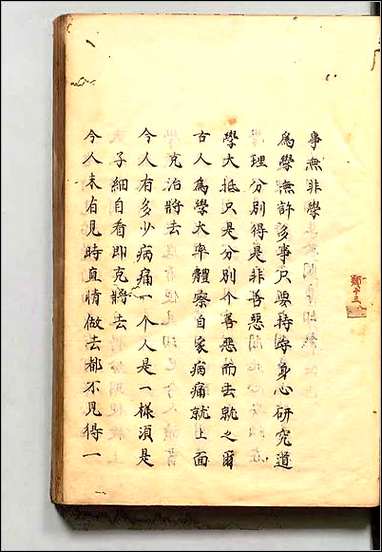 事無非學
為學無許多事只要持守身心研究道
理分別得是非善惡
學大抵只是分別个善惡而去就之爾
古人為學大率體察自家病痛就上面
克治將去
今人有多少病痛一个人是一樣須是
子細自看即克將去
今人未有見時直情做去都不見得一